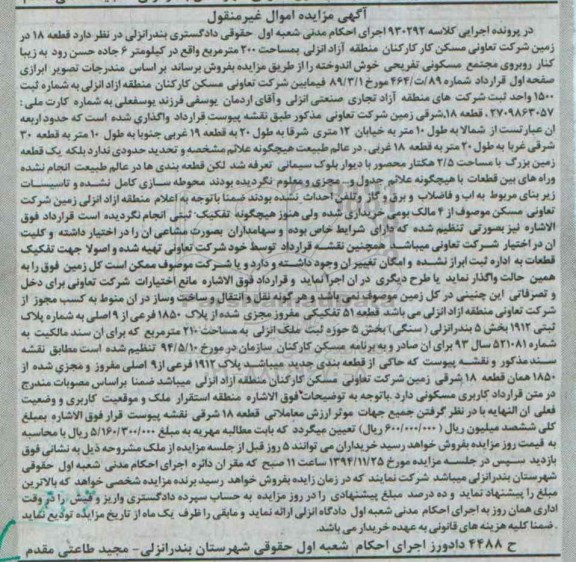 آگهی مزایده اموال غیرمنقول
در پرونده اجرایی کلاسه ۹۳۰۲۹۲ اجرای احکام مدنی شعبه اول حقوقی دادگستری بندرانزلی در نظر دارد قطعه ۱۸ در
زمین شرکت تعاونی مسکن کار کارکنان منطقه آزاد انزلی بمساحت ۲۰۰ مترمربع واقع در کیلومتر ۶ جاده حسن رود به زیبا
کنار روبروی مجتمع مسکونی تفریحی خوش اندوخته را از طریق مزایده بفروش برساند بر اساس مندرجات تصویر ابرازی
صفحه اول قرارداد شماره ۸۹/ت/۴۶۴ مورخ ۸۹/۳/۱ فیمابین شرکت تعاونی مسکن کارکنان منطقه ازاد انزلی به شماره ثبت
۱۵۰۰ واحد ثبت شرکت های منطقه آزاد تجاری صنعتی انزلی وآقای اردمان یوسفی فرزند یوسفعلی به شماره کارت ملی :
۲۷۰۹۸۶۳۰۵۷ ، قطعه ۱۸،شرقی زمین شرکت تعاونی مذکور طبق نقشه پیوست قرارداد واگذاری شده است که حدود اربعه
ان عبارتست از شمالا به طول ۱۰ متر به خیابان ۱۲ متری شرقا به طول ۲۰ به قطعه ۱۹ غربی جنوبا به طول ۱۰ متر به قطعه ۳۰
شرقی غربا به طول ۲۰ متر به قطعه ۱۸ غربی . در عالم طبیعت هیچگونه علائم مشخصه و تحدید حدودی ندارد بلکه یک قطعه
زمین بزرگ با مساحت ۲/۵ هکتار محصور با دیوار بلوک سیمانی تعرفه شد لکن قطعه بندی ها در عالم طبیعت انجام نشده
وراه های بین قطعات با هیچگونه علائم جدول و مجزی و معلوم نگردیده بودند محوطه سازی کامل نشده و تاسیسات
زیر بنای مربوط به اب و فاضلاب و برق و گاز وتلفن احداث نشده بودند ضمنا باتوجه به اعلام منطقه ازاد انزلی زمین شرکت
تعاونی مسکن موصوف از ۴ مالک بومی خریداری شده ولی هنوز هیچگونه تفکیک ثبتی انجام نگردیده است قرارداد فوق
الاشاره نیز بصورتی تنظیم شده که دارای شرایط خاص بوده و سهامداران بصورت مشاعی ان را در اختیار داشته و کلیت
ان در اختیار شرکت تعاونی میباشد همچنین نقشه قرارداد توسط خود شرکت تعاونی تهیه شده و اصولا جهت تفکیک
قطعات به اداره ثبت ابراز نشده و امکان تغییر ان وجود داشته و دارد و یا شرکت موصوف ممکن است کل زمین فوق را به
همین حالت واگذار نماید یا طرح دیگری در ان اجرا نماید و قرارداد فوق الاشاره مانع اختیارات شرکت تعاونی برای دخل
و تصرفاتی این چنینی در کل زمین موصوف نمی باشد و هر گونه نقل و انتقال و ساخت وساز در ان منوط به کسب مجوز از
شرکت تعاونی منطقه ازاد انزلی می باشد قطعه ۵۱ تفکیکی مفروز مجزی شده از پلاک ۱۸۵۰ فرعی از ۹ اصلی به شماره پلاک
ثبتی ۱۹۱۲ بخش ۵ بندرانزلی ( سنگی ) بخش ۵ حوزه ثبت ملک انزلی به مساحت ۲۱۰ مترمربع که برای ان سند مالکیت به
شماره ۵۲۱۰۸۱ سال ۹۳ برای ان صادر و به برنامه مسکن کارکنان سازمان در مورخ ۹۴/۵/۱۰ تنظیم شده است مطابق نقشه
سند مذکور و نقشه پیوست که حاکی از قطعه بندی جدید میباشد پلاک ۱۹۱۲ فرعی از ۹ اصلی مفروز و مجزی شده از
۱۸۵۰ همان قطعه ۱۸ شرقی زمین شرکت تعاونی مسکن کارکنان منطقه آزاد انزلی میباشد ضمنا براساس مصوبات مندرج
در متن قرارداد کاربری مسکونی دارد .باتوجه به توضیحات فوق الاشاره منطقه استقرار ملک و موقعیت کاربری و وضعیت
فعلی ان النهایه با در نظر گرفتن جمیع جهات موثر ارزش معاملاتی قطعه ۱۸ شرقی نقشه پیوست قرار فوق الاشاره بمبلغ
کلی ششصد میلیون ریال ( ۶۰۰/۰۰۰/۰۰۰ ریال) تعیین میگردد که بابت مطالبه مهریه به مبلغ ۵/۱۶۰/۳۰۰/۰۰۰ ریال با محاسبه
به قیمت روز مزایده بفروش خواهد رسید خریداران می توانند ۵ روز قبل از جلسه مزایده از ملک مشروحه ذیل به نشانی فوق
بازدید سپس در جلسه مزایده مورخ ۱۳۹۴/۱۱/۲۵ ساعت ۱۱ صبح که مقر ان دائره اجرای احکام مدنی شعبه اول حقوقی
شهرستان بندرانزلی میباشد شرکت نمایند که در زمان زایده بفروش خواهد رسید برنده مزایده شخصی خواهد که بالاترین
مبلغ را پیشنهاد نماید و ده درصد مبلغ پیشنهادی را در روز مزایده به حساب سپرده دادگستری واریز و فیش را در وقت
اداری همان روز به اجرای احکام مدنی شعبه اول دادگاه انزلی ارائه نماید و مابقی را ظرف یک ماه از تاریخ مزایده تودیع نماید
. ضمنا کلیه هزینه های قانونی به عهده خریدار می باشد.
ح ۴۴۸۸ دادورز اجرای احکام شعبه اول حقوقی شهرستان بندرانزلی- مجید طاعتی مقدم